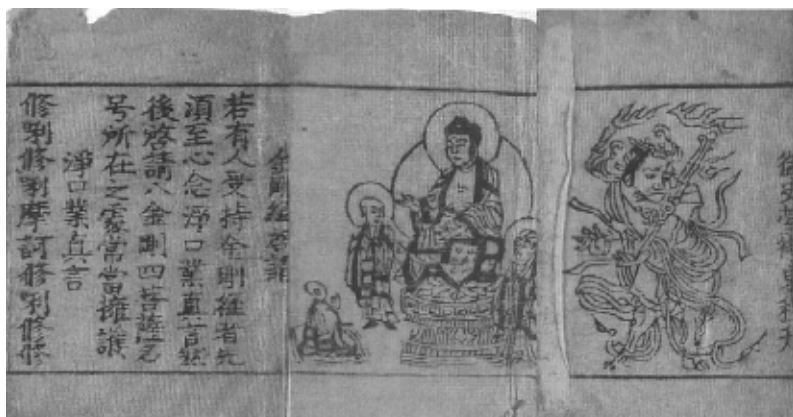 金剛經啓請
若有人受持金剛經者先
須至心念淨口業真言然
後啓請八金剛四菩薩名
号所在之處常當擁護
淨口業真言
修唎修唎摩訶修唎修修